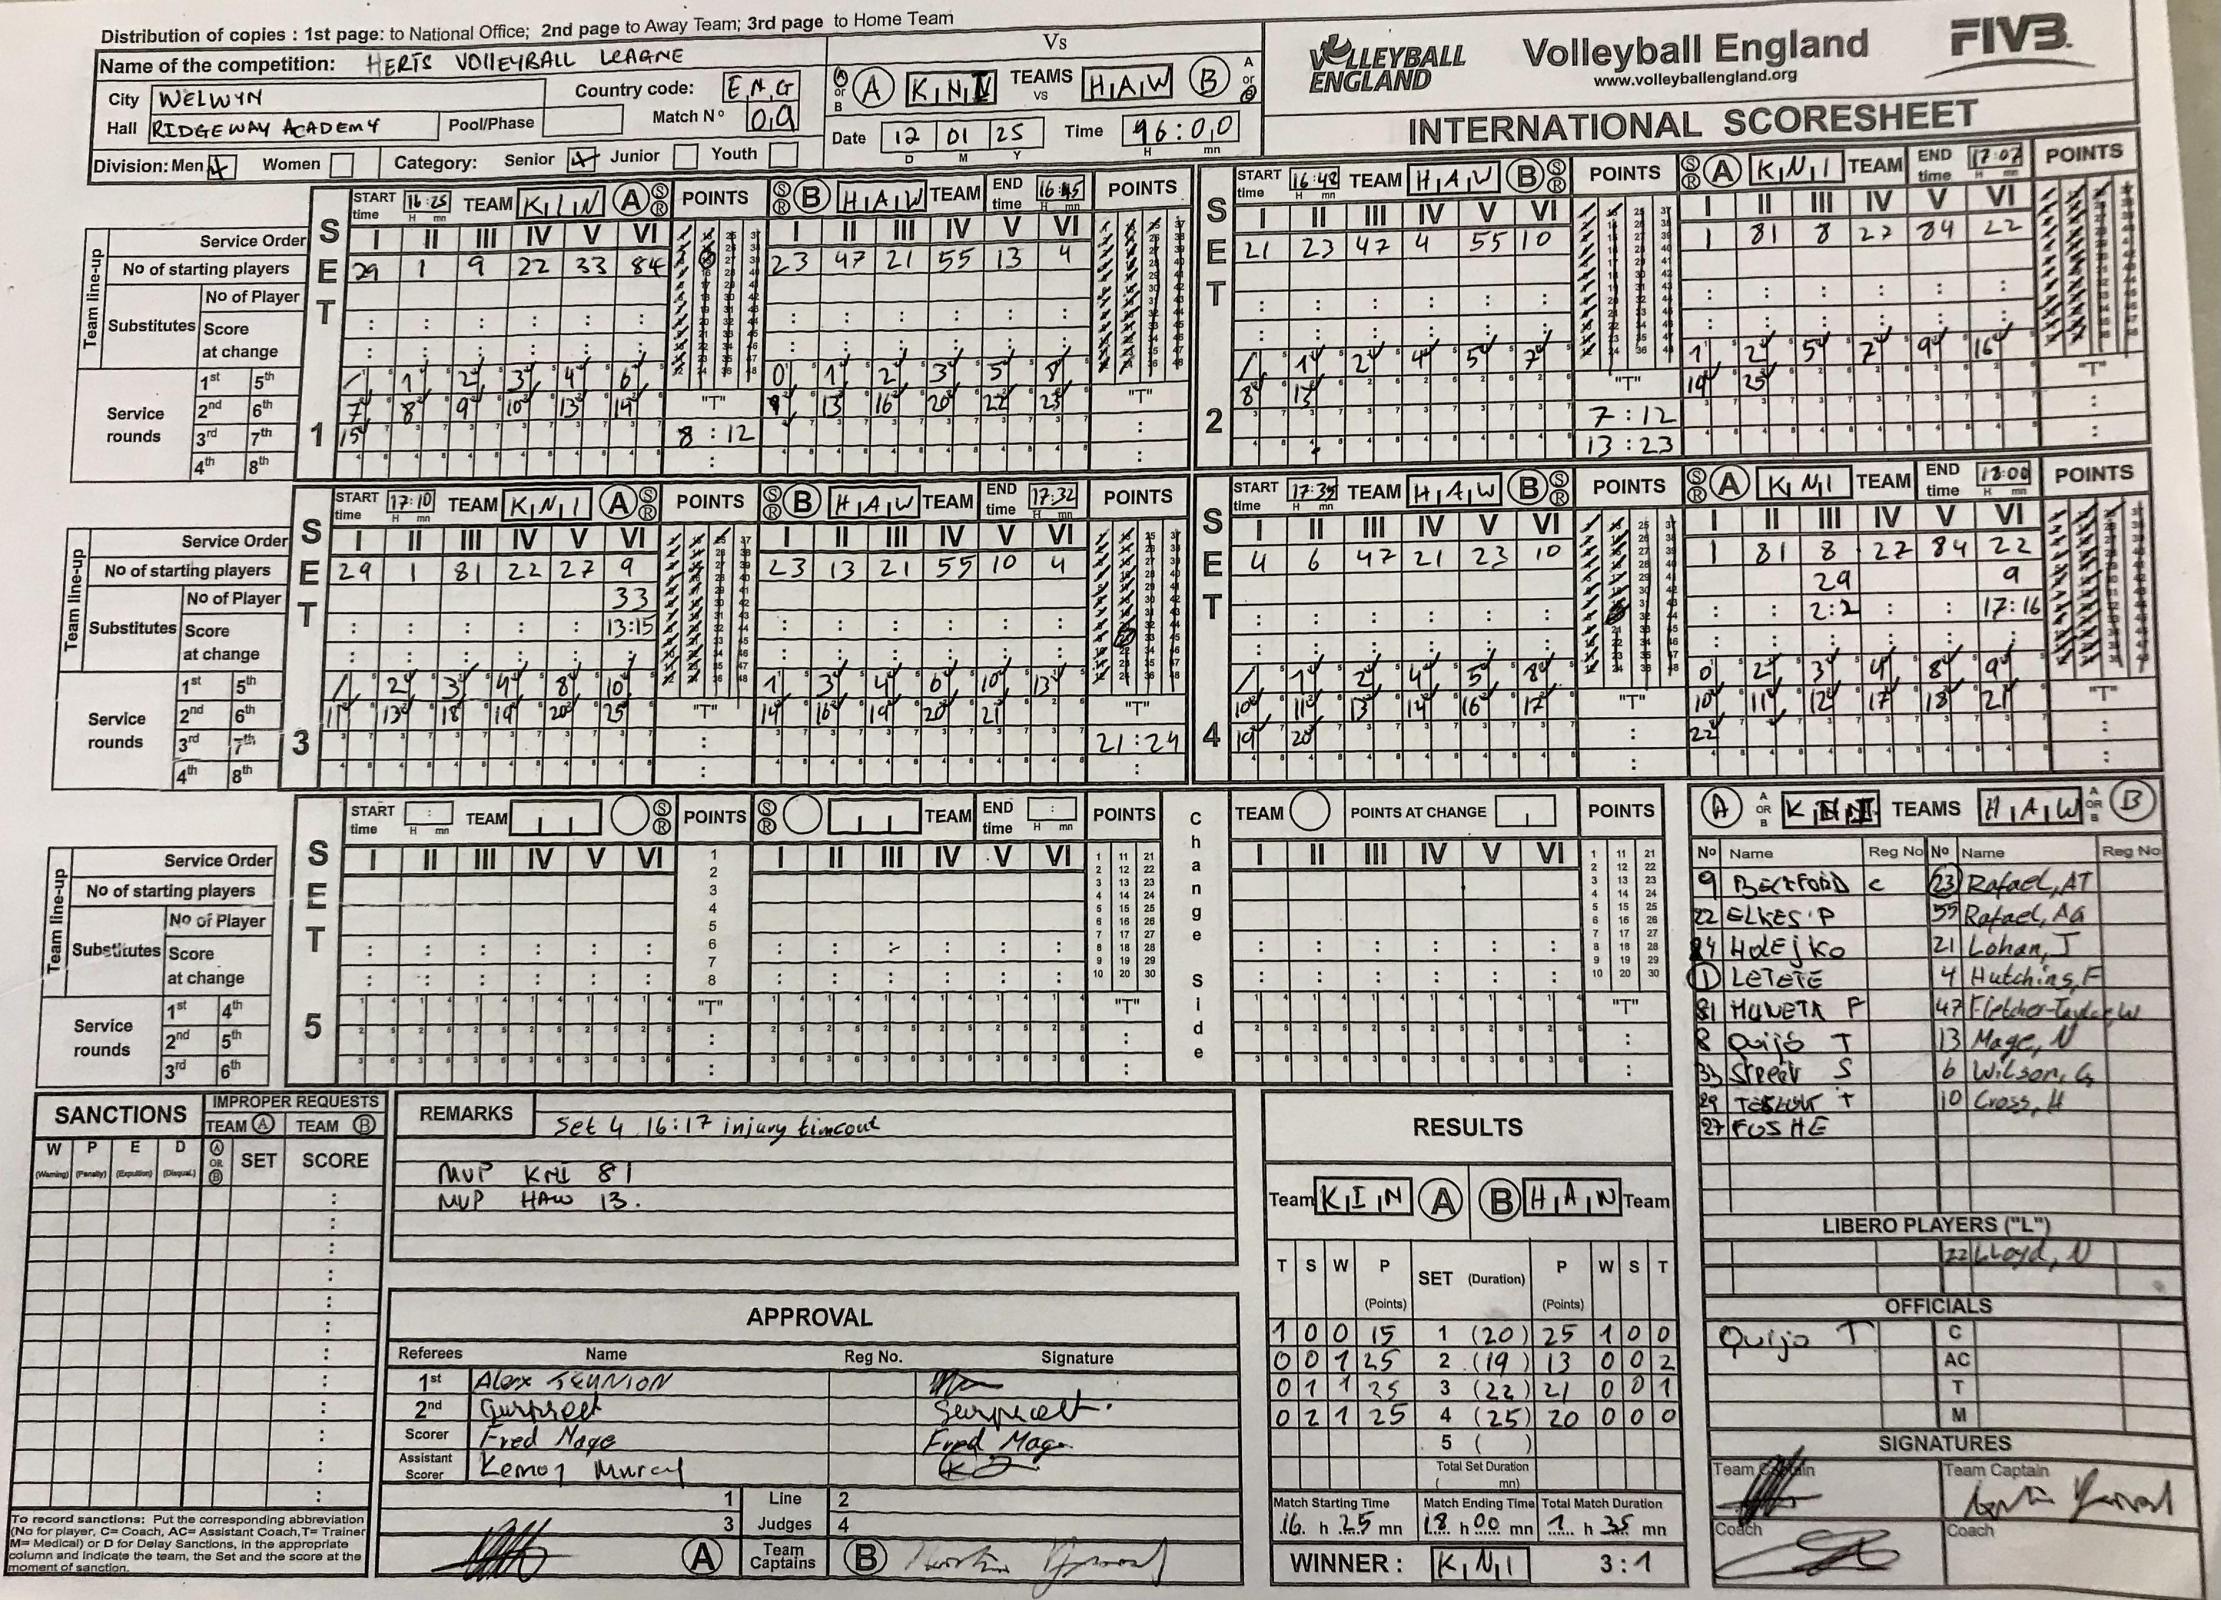 Distribution of copies : 1st page: to National Office; 2nd page to Away Team; 3rd page to Home Team
Name of the competition: HERTS VOLLEYBALL LEAGUE
City WELWYN Country code: E N G
Hall RIDGEWAY ACADEMY Pool/Phase Match Nº 09
Division: Men Women Category: Senior Junior Youth
Vs
A or B A K N I TEAMS VS H A W B A or B
Date 12 01 25 Time 16:00
D M Y H mn
VOLLEYBALL ENGLAND
Volleyball England
www.volleyballengland.org
FIVB
INTERNATIONAL SCORESHEET
SET 1
START time 16:25 TEAM K I N A S R POINTS S R B H A W TEAM END time 16:45 POINTS
Team line-up
Service Order I II III IV V VI I II III IV V VI
No of starting players 29 1 9 22 33 84 23 47 21 55 13 4
Substitutes No of Player
Score at change
Service rounds
1st 5th 1 2 3 4 6 0 1 2 3 5 8
2nd 6th 7 8 9 10 13 14 "T" 9 13 16 20 22 25 "T"
3rd 7th 15 8 : 12
4th 8th
SET 2
START time 16:48 TEAM H A W B S R POINTS S R A K N I TEAM END time 17:07 POINTS
I II III IV V VI I II III IV V VI
21 23 47 4 55 10 1 81 8 27 84 22
1 2 4 5 7 1 2 5 7 9 16
8 13 "T" 19 25 "T"
7 : 12
13 : 23
SET 3
START time 17:10 TEAM K N I A S R POINTS S R B H A W TEAM END time 17:32 POINTS
Team line-up
Service Order I II III IV V VI I II III IV V VI
No of starting players 29 1 81 22 27 9 23 13 21 55 10 4
Substitutes No of Player 33
Score at change 13:15
Service rounds
1st 5th 2 3 4 8 10 1 3 4 6 10 13
2nd 6th 11 13 18 19 20 25 "T" 14 16 19 20 21 "T"
3rd 7th 21 : 24
4th 8th
SET 4
START time 17:35 TEAM H A W B S R POINTS S R A K N I TEAM END time 18:00 POINTS
I II III IV V VI I II III IV V VI
4 6 47 21 23 10 1 81 8 27 84 22
29 9
2:2 17:16
1 2 4 5 8 0 2 3 4 8 9
10 11 13 14 16 17 "T" 10 11 12 17 18 21 "T"
19 20 22
SET 5
START time TEAM S R POINTS S R TEAM END time POINTS
Change Side
TEAM POINTS AT CHANGE POINTS
Team line-up
Service Order I II III IV V VI I II III IV V VI I II III IV V VI
No of starting players
Substitutes No of Player
Score at change
Service rounds
1st 4th "T" "T" "T"
2nd 5th
3rd 6th
A A OR B K N I TEAMS H A W A OR B B
No Name Reg No No Name Reg No
9 BECKFORD C 23 Rafael, AT
22 ELKES P 55 Rafael, AG
84 HOLEJKO 21 Lohan, J
1 LETETE 4 Hutchins, F
81 MUNETA P 47 Fletcher-Taylor, W
8 Quijo T 13 Mage, N
33 Street S 6 Wilson, G
29 T 10 Cross, H
27 FOSHE
LIBERO PLAYERS ("L")
22 Lloyd, N
OFFICIALS
Quijo T C
AC
T
M
SIGNATURES
Team Captain Team Captain
Coach Coach
SANCTIONS
IMPROPER REQUESTS
TEAM A TEAM B
W P E D A OR B SET SCORE
(Warning) (Penalty) (Expulsion) (Disqual.)
To record sanctions: Put the corresponding abbreviation
(No for player, C= Coach, AC= Assistant Coach, T= Trainer
M= Medical) or D for Delay Sanctions, in the appropriate
column and indicate the team, the Set and the score at the
moment of sanction.
REMARKS
Set 4 16:17 injury timeout
MVP KNI 81
MVP HAW 13.
APPROVAL
Referees Name Reg No. Signature
1st Alex
2nd Gurpreet
Scorer Fred Mage Fred Mage
Assistant Scorer
1 Line 2
3 Judges 4
A Team Captains B
RESULTS
Team K I N A B H A W Team
T S W P (Points) SET (Duration) P (Points) W S T
1 0 0 15 1 (20) 25 1 0 0
0 0 1 25 2 (19) 13 0 0 2
0 1 1 25 3 (22) 21 0 0 1
0 2 1 25 4 (25) 20 0 0 0
5 ( )
Total Set Duration
( mn)
Match Starting Time Match Ending Time Total Match Duration
16 h 25 mn 18 h 00 mn 1 h 35 mn
WINNER : K N I 3 : 1